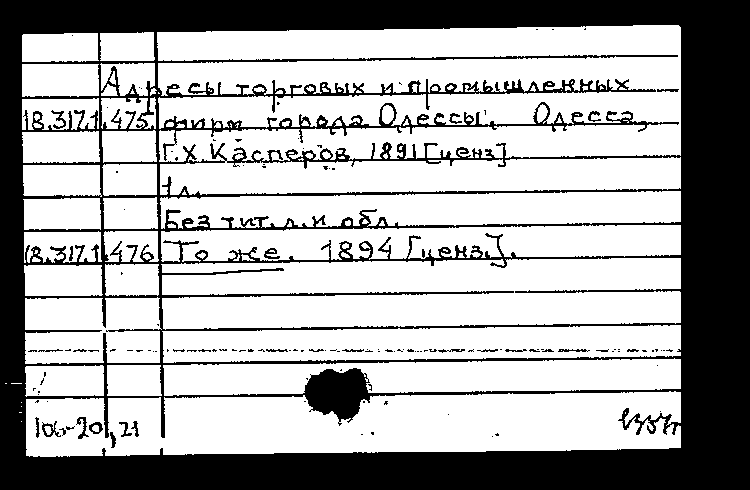 Адресы торговых и промышленных
18.317.1.475. фирм города Одессы. Одесса,
Г.Х. Касперов, 1891 [ценз]
1 л.
Без тит. л. и обл.
18.317.1.476 То же. 1894 [ценз.].
106-20, 21